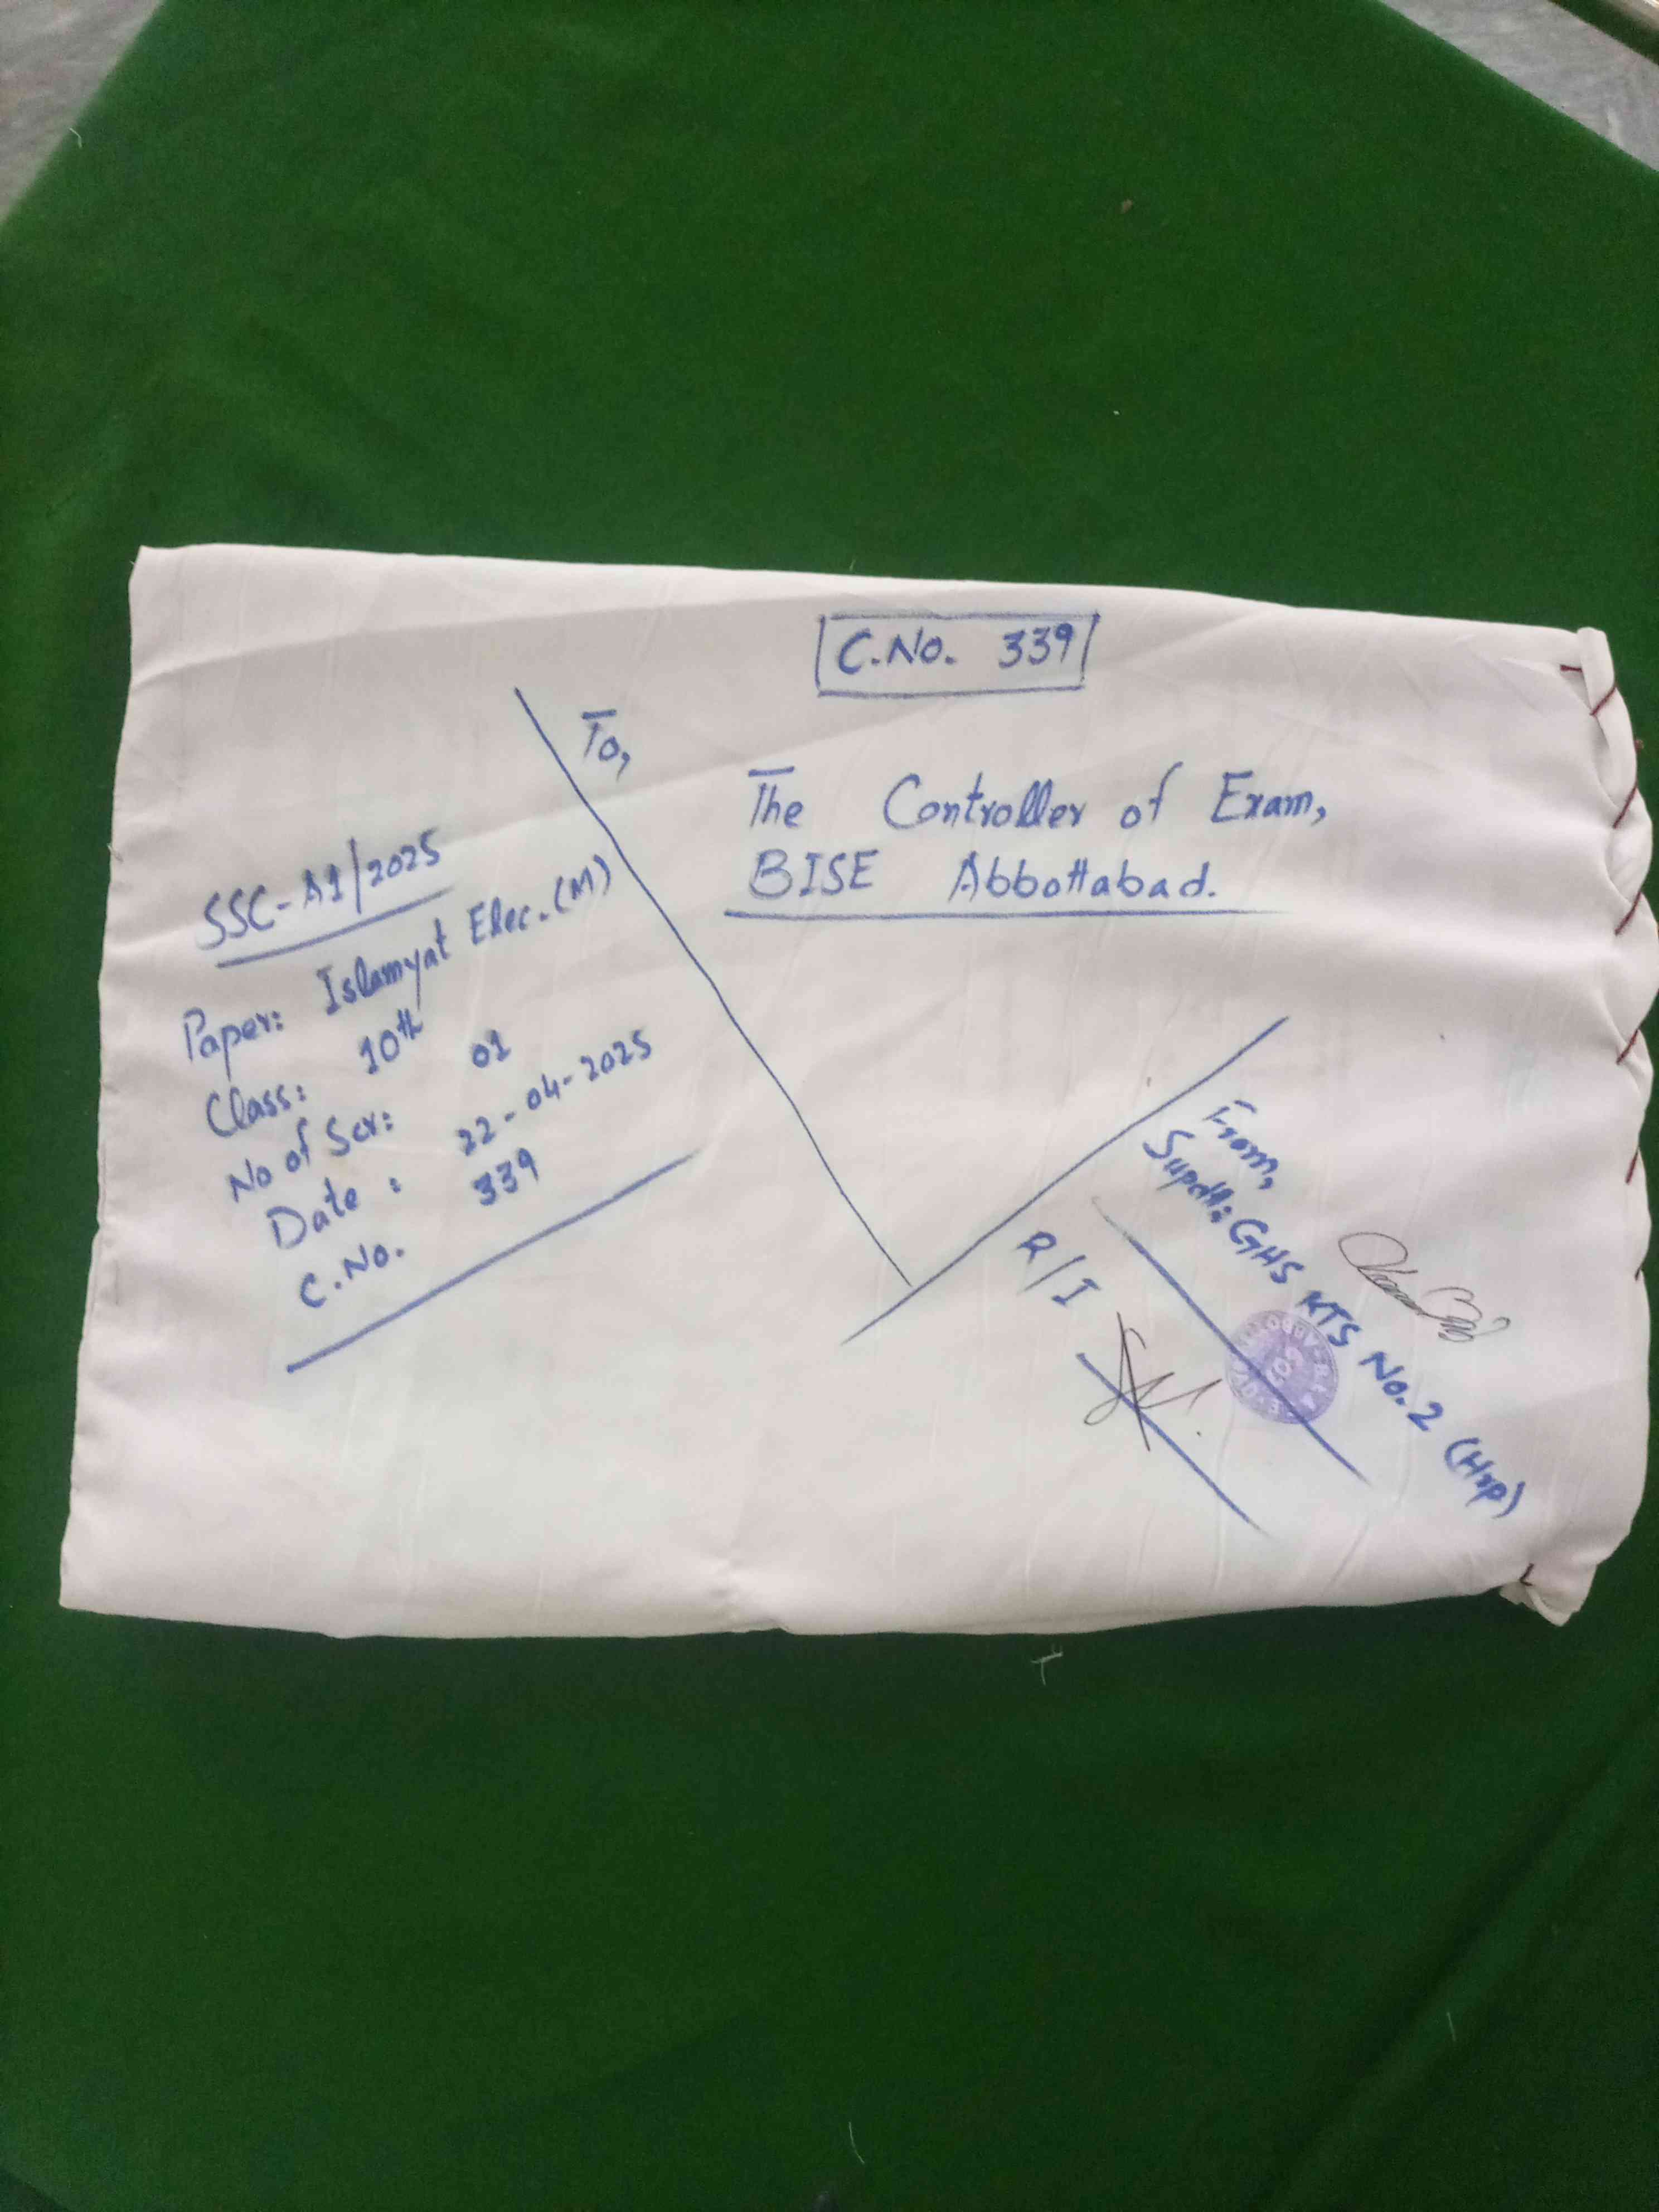 C.No. 339
To,
The Controller of Exam,
BISE Abbottabad.
SSC-A1/2025
Paper: Islamyat Elec.(M)
Class: 10th
No of Scr: 01
Date: 22-04-2025
C.No. 339
From,
Supdtt: GHS KTS No.2 (Hrp)
R/I